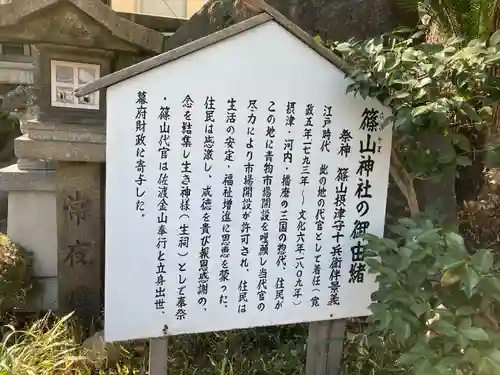 篠山神社の御由緒
祭神 篠山摂津守十兵衛伴景義
江戸時代 此の地の代官として着任(寛
政五年一七九三年〜文化六年一八〇九年
摂津・河内・播磨の三国の惣代、住民が
この地に青物市場開設を嘆願し当代官の
尽力により市場開設が許可され、住民の
生活の安定・福祉増進に恩恵を蒙った。
住民は感激し、威徳を貴び報恩感謝の
念を結集し生き神様(生祠)として奉祭
・篠山代官は佐渡金山奉行と立身出世、
幕府財政に寄与した。
常夜